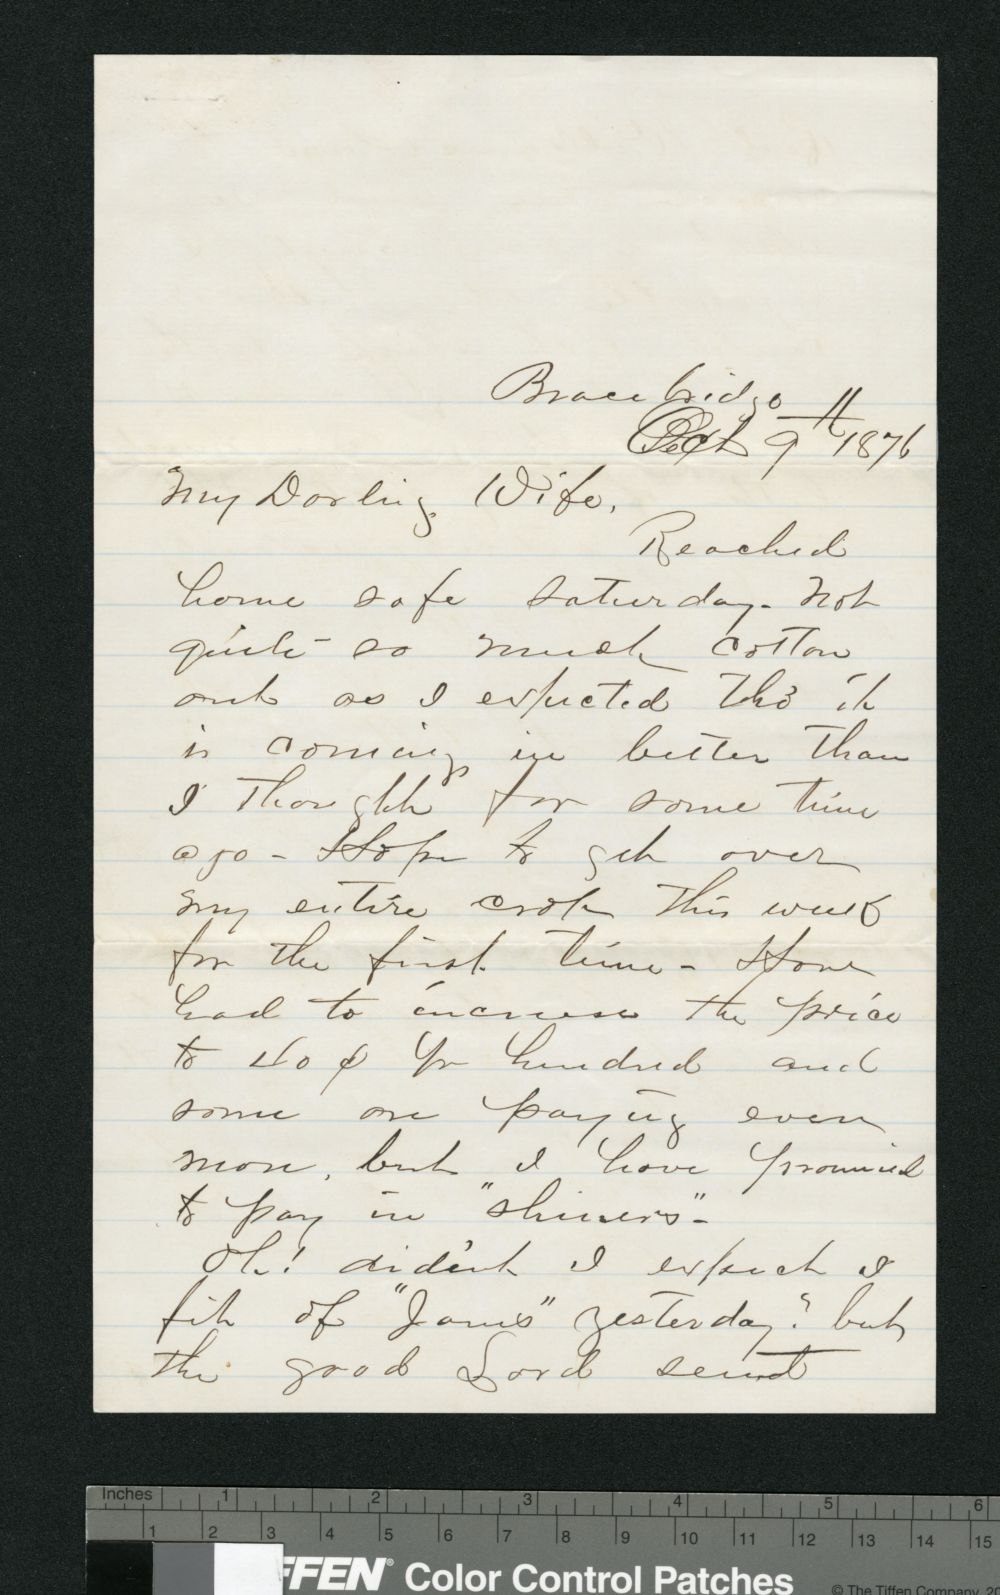 Bracebridge
Oct 9th 1876
My Darling Wife,
Reached
home safe Saturday. Not
quite so much cotton
out as I expected tho' it
is coming in better than
I thought for some time
ago - Hope to get over
my entire crop this week
for the first time - Have
had to increase the price
to 40¢ pr hundred and
some are paying even
more, but I have promised
to pay in "shiners" -
Oh! did'ent I expect a
fit of "Jams" yesterday? but
the good Lord sent
Inches 1 2 3 4 5 6
1 2 3 4 5 6 7 8 9 10 11 12 13 14 15
FFEN® Color Control Patches
© The Tiffen Company, 20